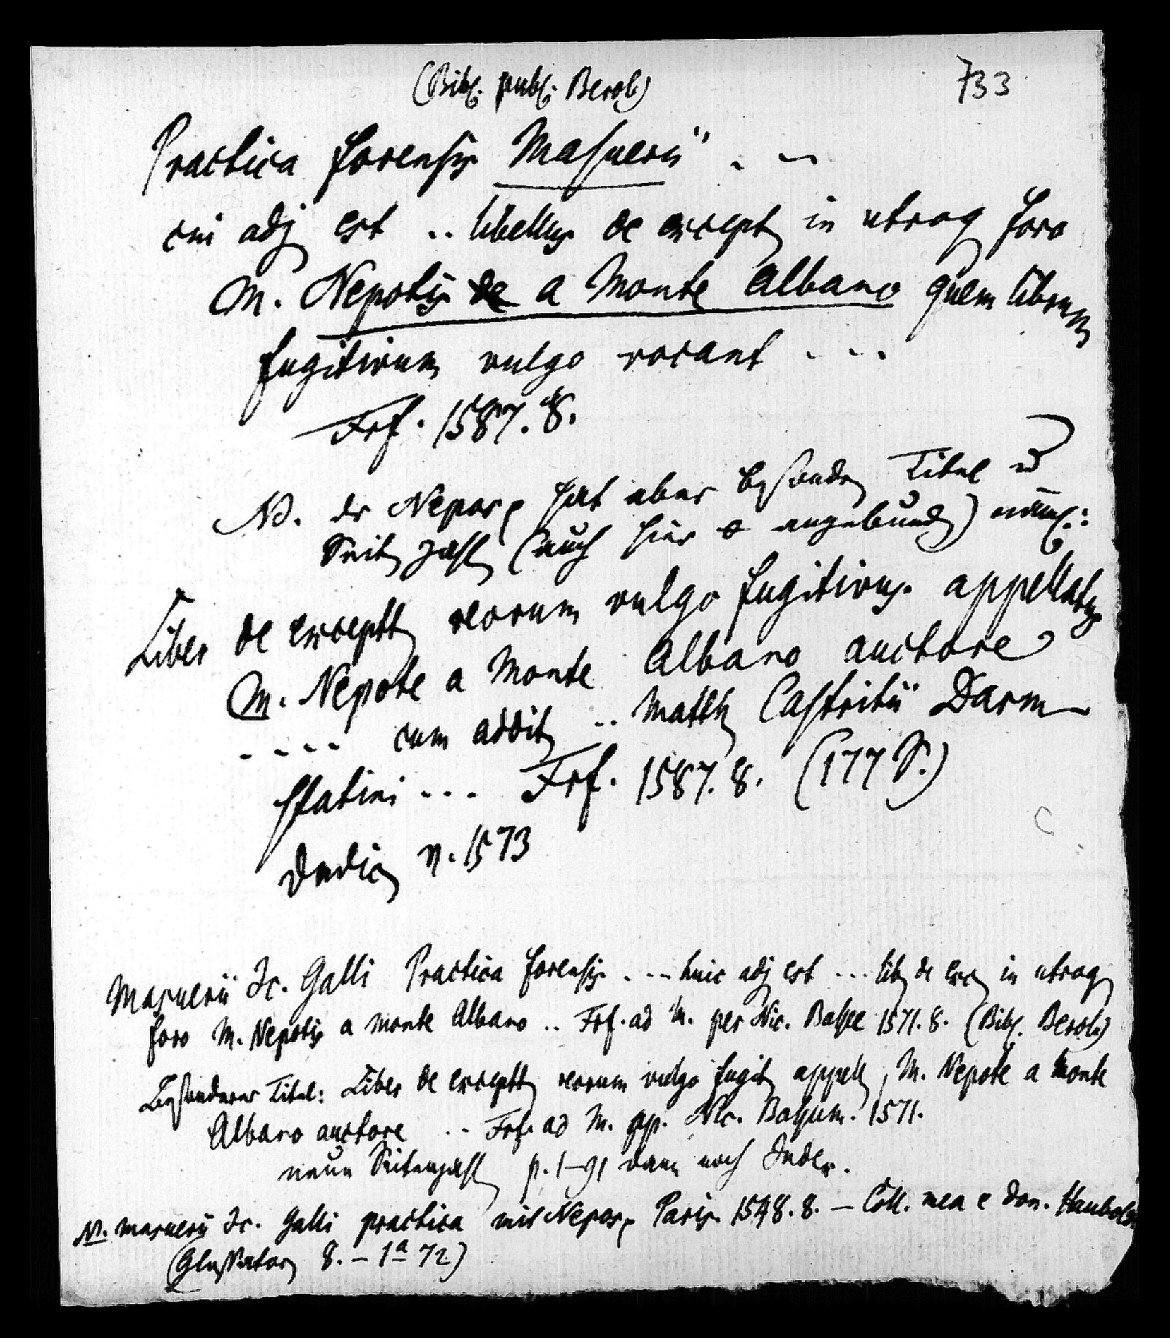 (Bibl. publ. Berol.) 733
Practica forensis Masuerii . ..
cui adj est .. libellus de except in utroq foro
M. Nepotis de a Monte Albano quem librum
fugitivum vulgo vocant ...
Frf. 1587. 8.
NB. der Nepos hat aber besonder Titel u
Seit zahl (auch hier angebund) näml:
Liber de exceptt reorum vulgo fugitivus appellatus
M. Nepote a Monte Albano auctore
.... cum addit .. Matth Castritii Darm
statini ... Frf. 1587. 8. (177 S.)
Dedic v. 1573
C
Masuerii Jc. Galli Practica forensis ... huic adj est ... lib de exc in utroq
foro M. Nepotis a monte Albano .. Frf. ad M. per Nic. Basse 1571. 8. (Bibl. Berol)
Besonderer Titel: Liber de exceptt reorum vulgo fugit appell, M. Nepote a Monte
Albano auctore .. Frf. ad M. ap. Nic. Basseum. 1571.
neue Seitenzahl p. 1–91 dann noch Index.
NB. Masuerii Jc. Galli practica mit Nepos Paris 1548. 8. – Coll. mea e don. Haubold
(Glossator 8. – 1a 72)